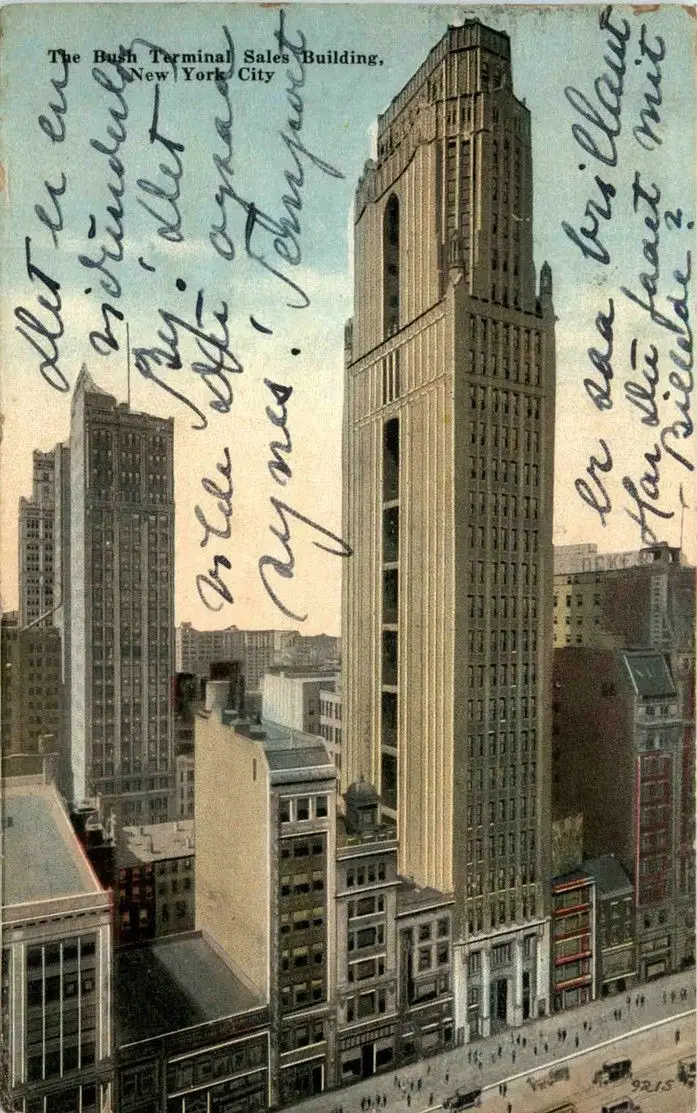 The Bush Terminal Sales Building,
New York City
Det er en
vidunderlig
By! Det
vilde ogsaa
synes! Tempoet
er saa brillant
Har du faaet mit
– Billede?
9215